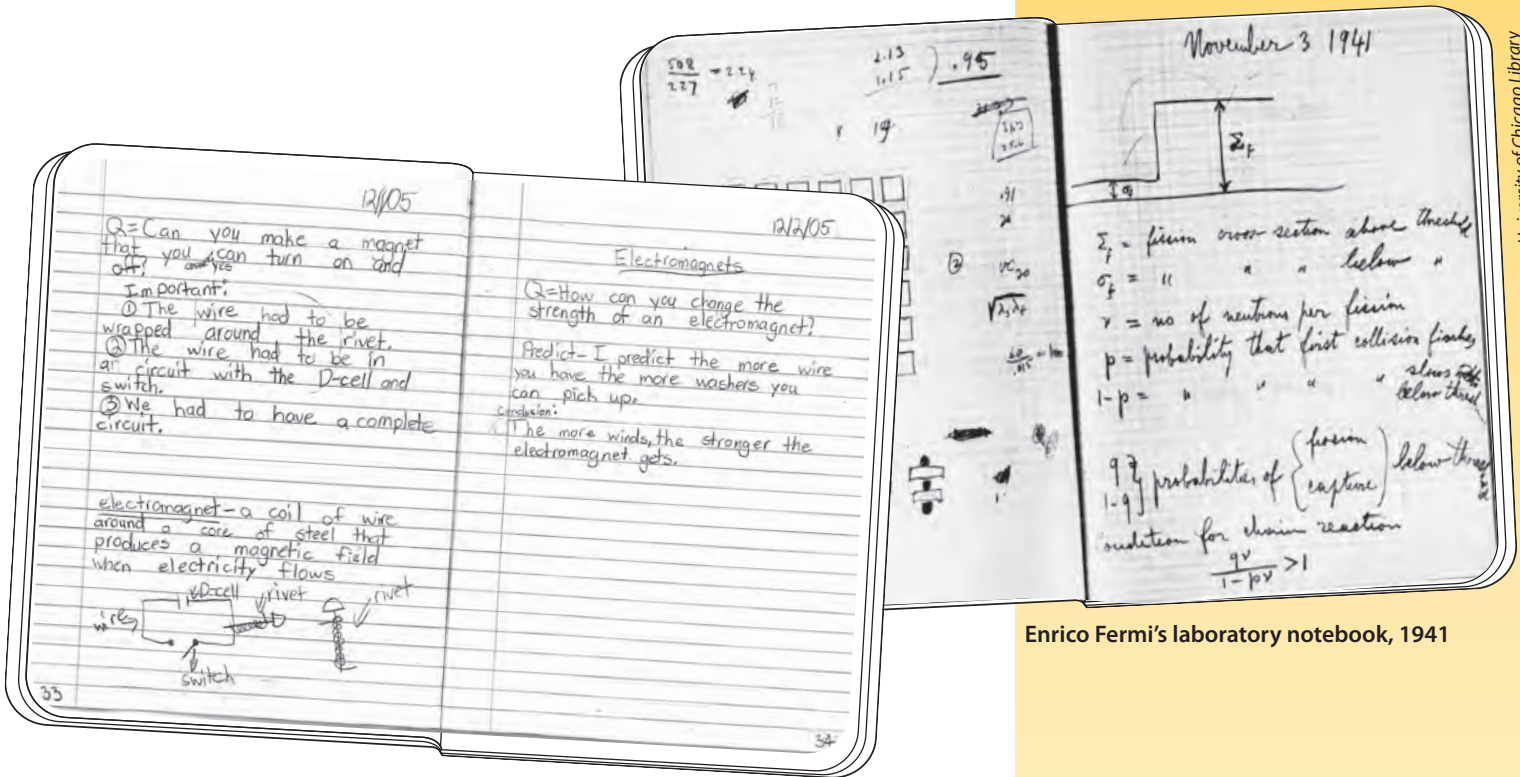 12/1/05
Q=Can you make a magnet
that you can turn on and
off? yes
Important:
① The wire had to be
wrapped around the rivet.
② The wire had to be in
a circuit with the D-cell and
switch.
③ We had to have a complete
circuit.
electromagnet - a coil of wire
around a core of steel that
produces a magnetic field
when electricity flows
D-cell
rivet
rivet
wire
switch
33
12/2/05
Electromagnets
Q=How can you change the
strength of an electromagnet?
Predict- I predict the more wire
you have the more washers you
can pick up.
Conclusion:
The more winds, the stronger the
electromagnet gets.
34
508/227 = 2.24
2.13
1.15 ) .95
19
.91
November 3 1941
Σf
σf
Σf = fission cross section above threshold
σf = " " " below "
ν = no of neutrons per fission
p = probability that first collision
1-p = " " " slows
below
q
1-q } probabilities of { fission
capture } below
condition for chain reaction
qν/(1-pν) > 1
University of Chicago Library
Enrico Fermi's laboratory notebook, 1941